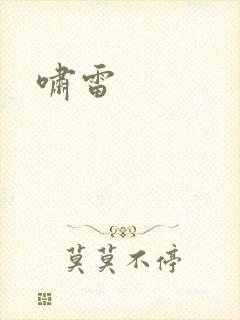 啸雷
莫莫不停